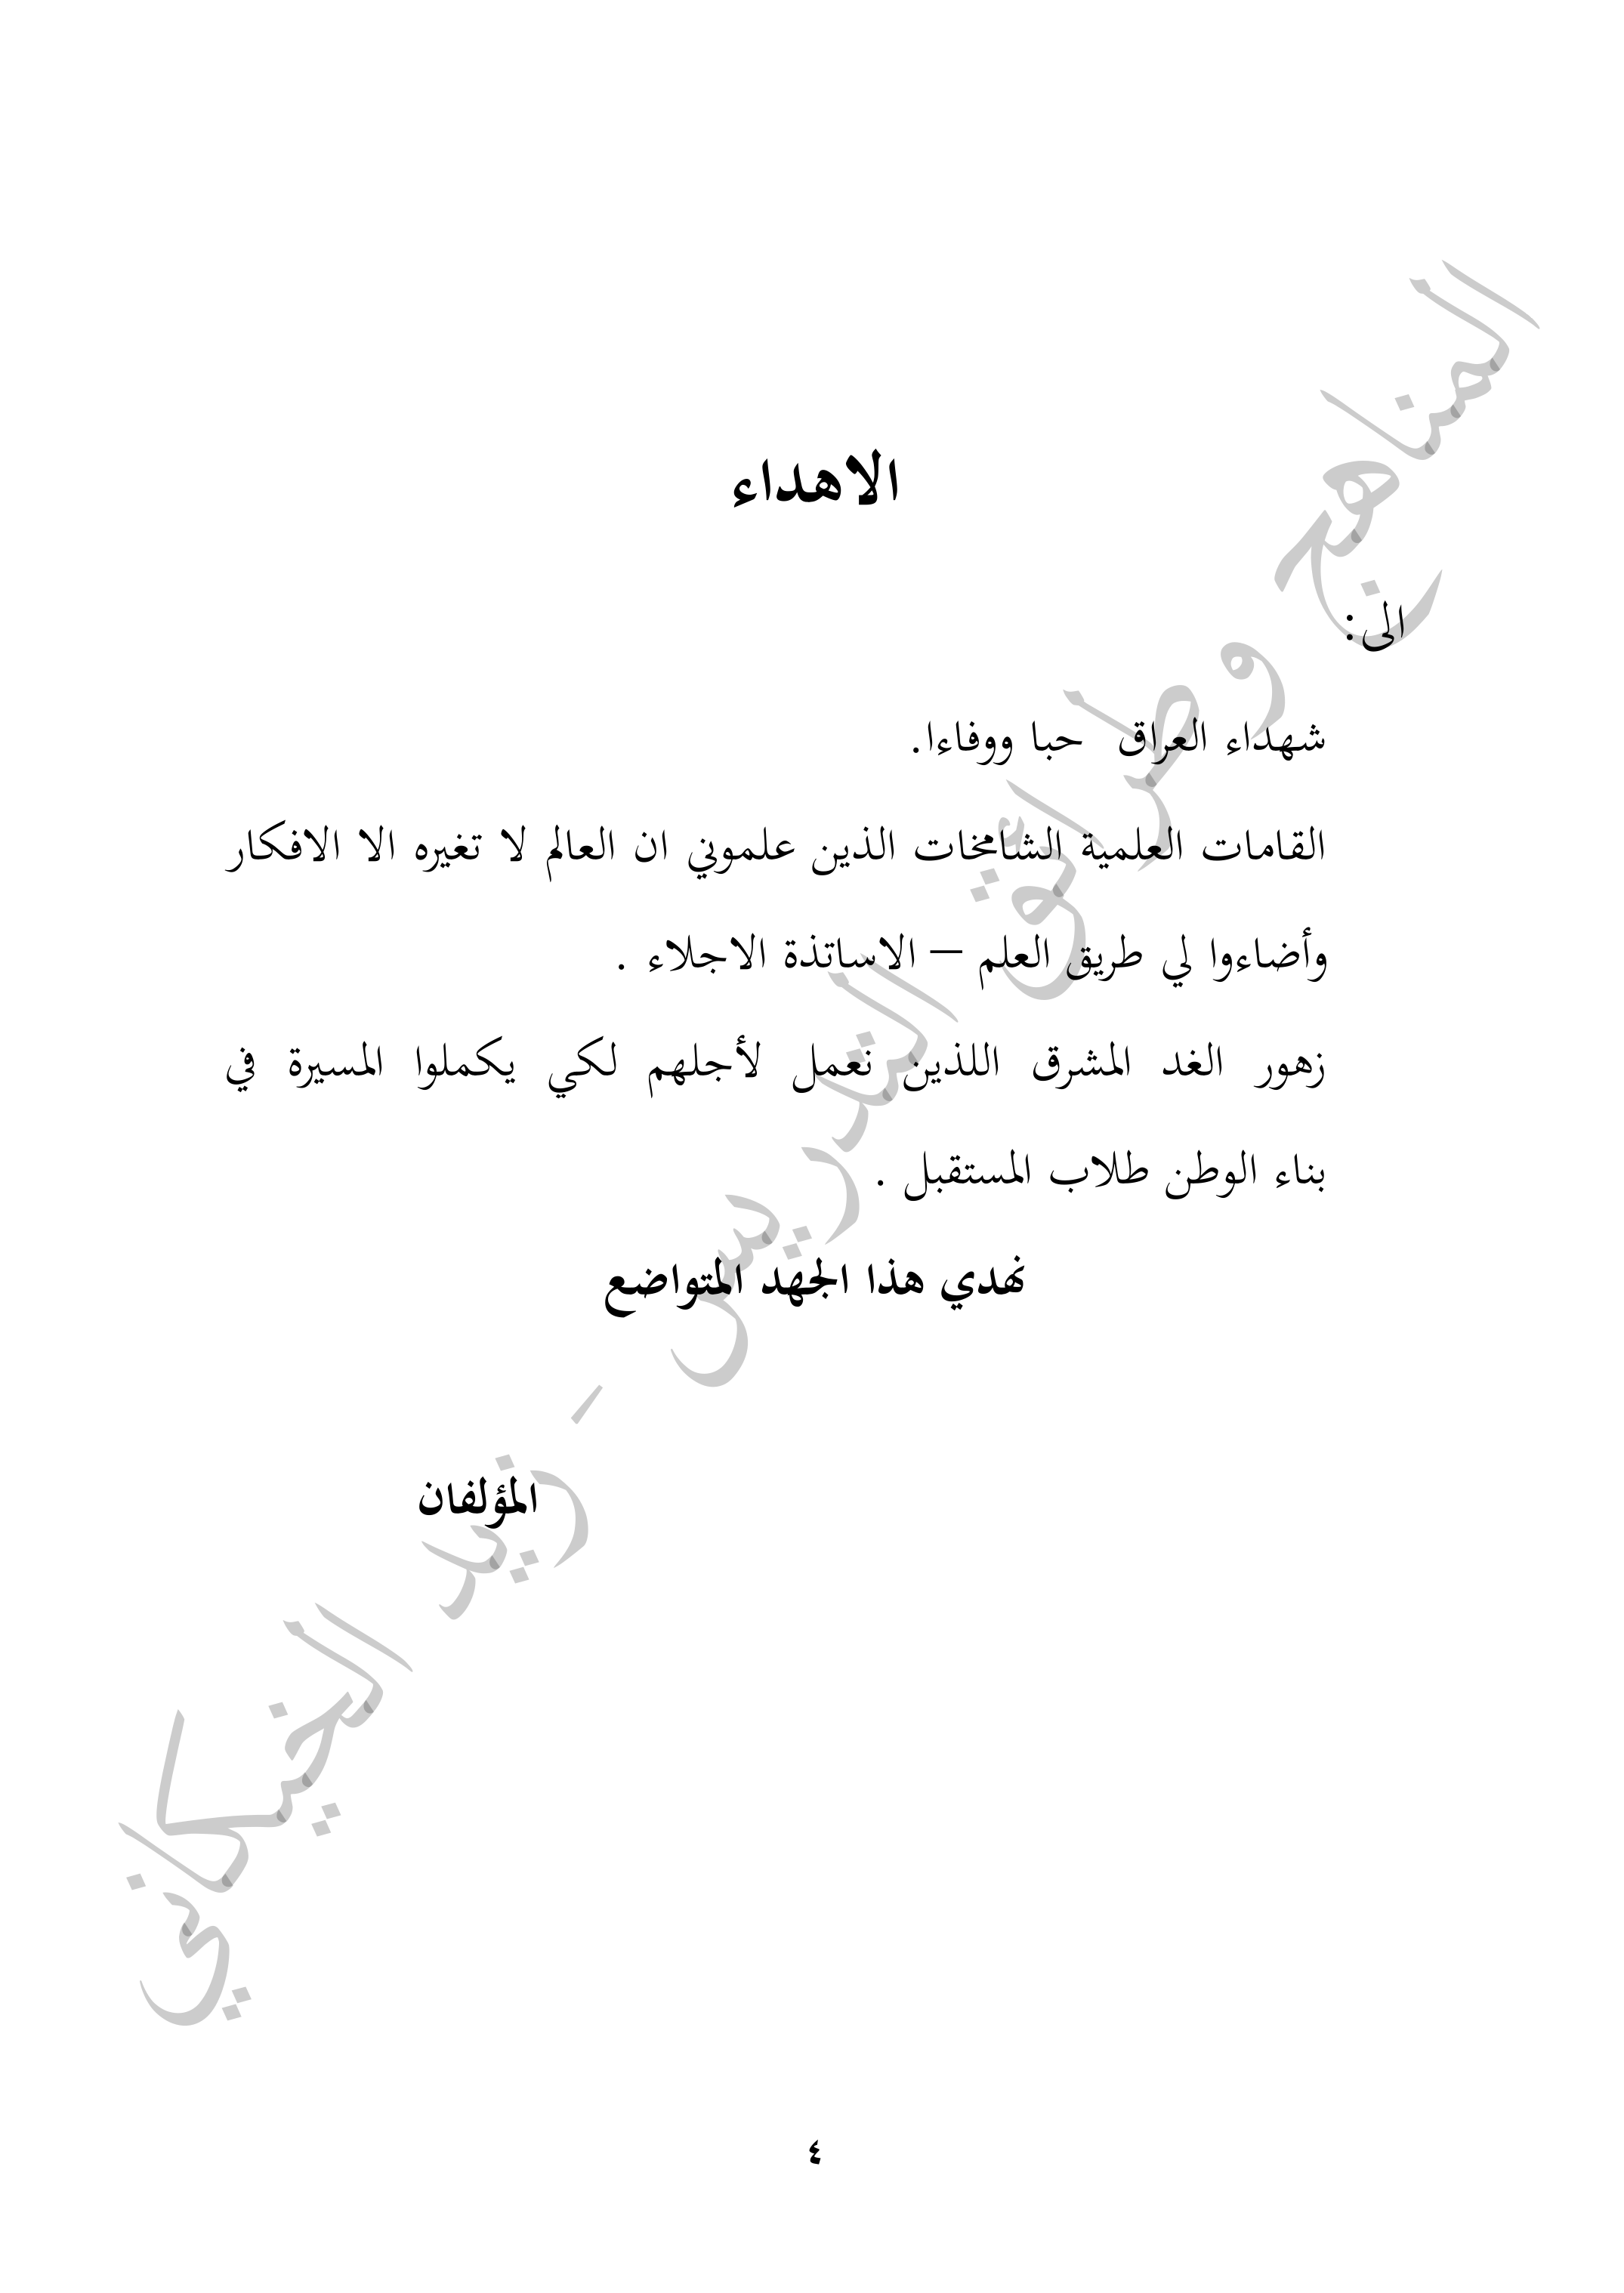 الاهداء
الى:
شهداء العراق حبا ووفاءا.
القامات العلمية الشامخات الذين علموني ان العالم لا تغيره الا الافكار
وأضاءوا لي طريق العلم – الاساتذة الاجلاء .
زهور الغد المشرق اللذين نعمل لأجلهم لكي يكملوا المسيرة في
بناء الوطن طلاب المستقبل .
نهدي هذا الجهد المتواضع
المؤلفان
المناهج وطرائق التدريس - زيد الخيكاني
٤